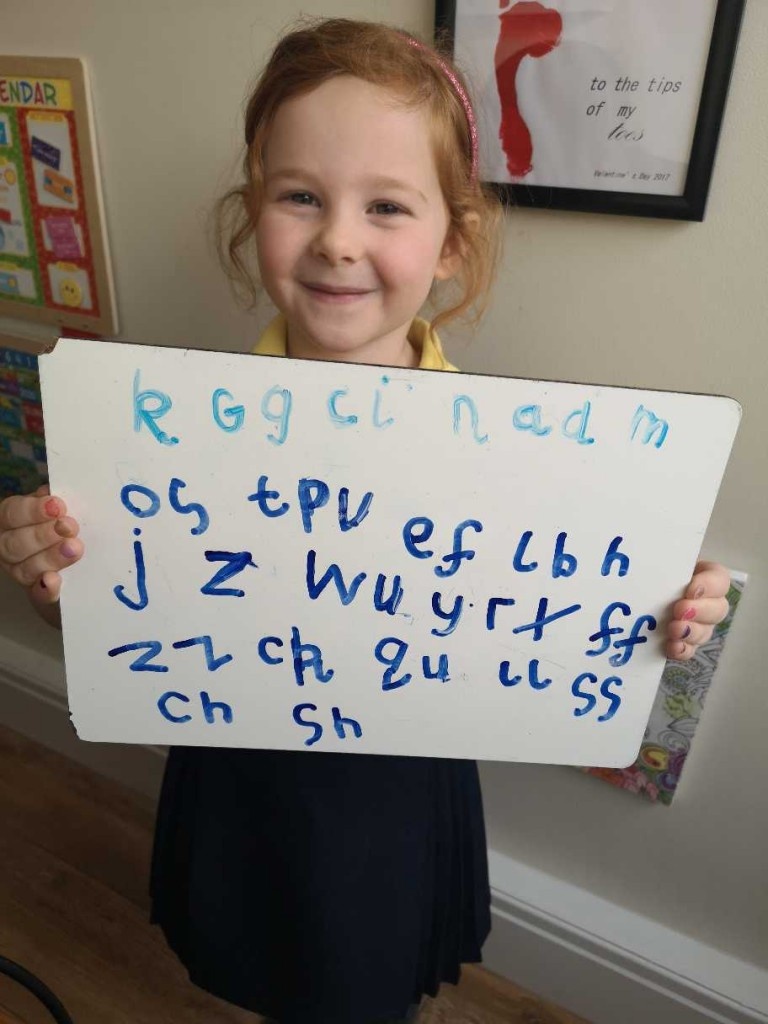 ENDAR
to the tips
of my
toes
Valentine's Day 2017
k G g c i n a d m
o s t p v e f l b h
j z w u y r x ff
zz ck qu ll ss
ch sh